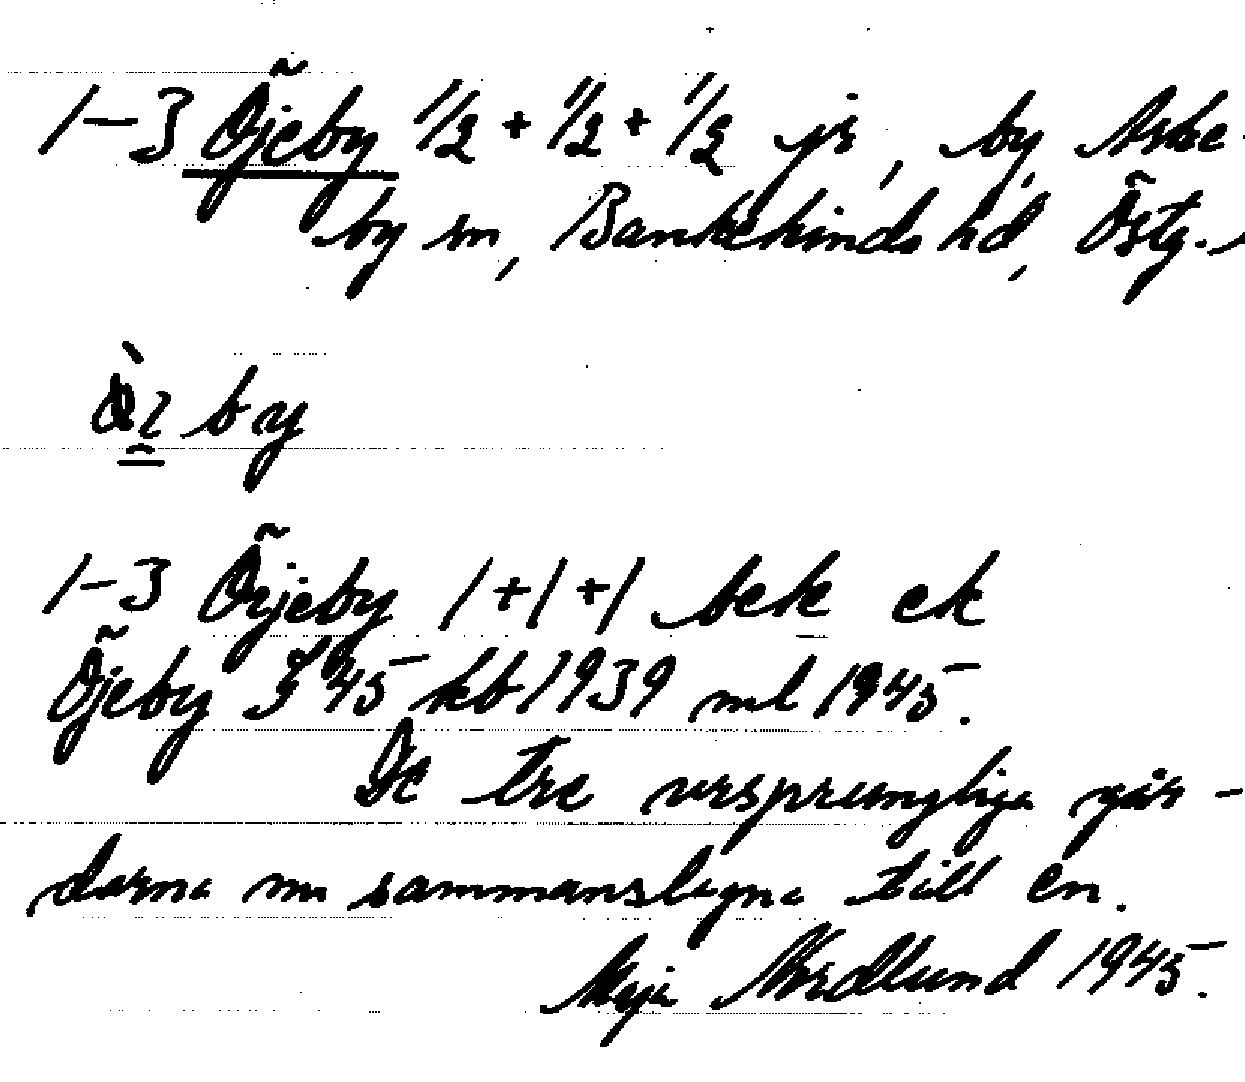 1-3 Öjeby ½ + ½ + ½ jr, by Aske-
by sn, Bankekinds hd, Östg.
by
1-3 Öjeby 1+1+1 bek ek
Öjeby J 45 kb 1939 ml 1945.
De tre ursprungliga går-
darna nu sammanslagna till en.
Maja Nordlund 1945.